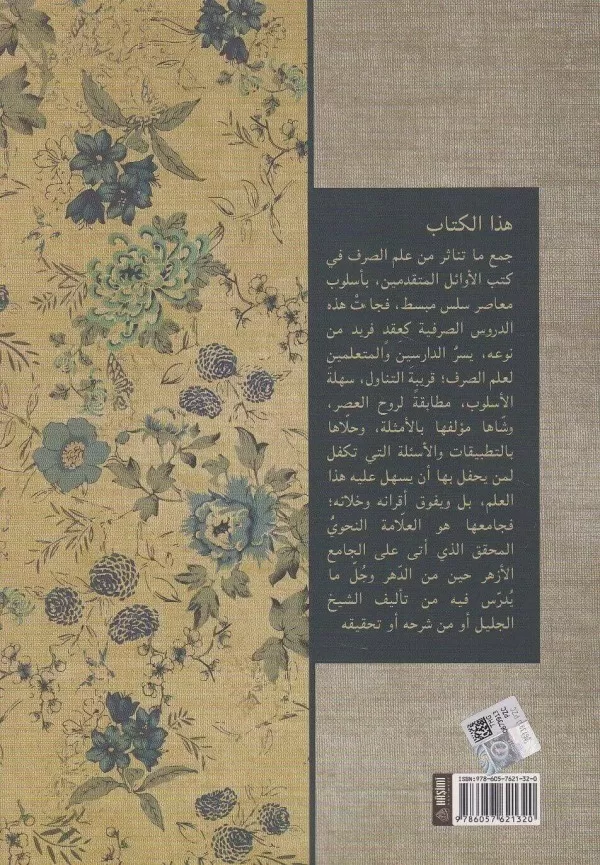 هذا الكتاب
جمع ما تناثر من علم الصرف في
كتب الأوائل المتقدمين، بأسلوب
معاصر سلس مبسط، فجا تْ هذه
الدروس الصرفية كعِقد فريد من
نوعه، يسرُّ الدارسين والمتعلمين
لعلم الصرف؛ قريبةَ التناول، سهلةَ
الأسلوب، مطابقةً لروح العصر،
وشّاها مؤلفها بالأمثلة، وحلاها
بالتطبيقات والأسئلة التي تكفل
لمن يحفل بها أن يسهل عليه هذا
العلم، بل ويفوق أقرانه وخلاته؛
فجامعها هو العلّامة النحويُّ
المحقق الذي أتى على الجامع
الأزهر حين من الدهر وجُلّ ما
يُدرّس فيه من تأليف الشيخ
الجليل أو من شرحه أو تحقيقه
HAŞİMİ
ISBN:978-605-7621-32-0
9786057621320